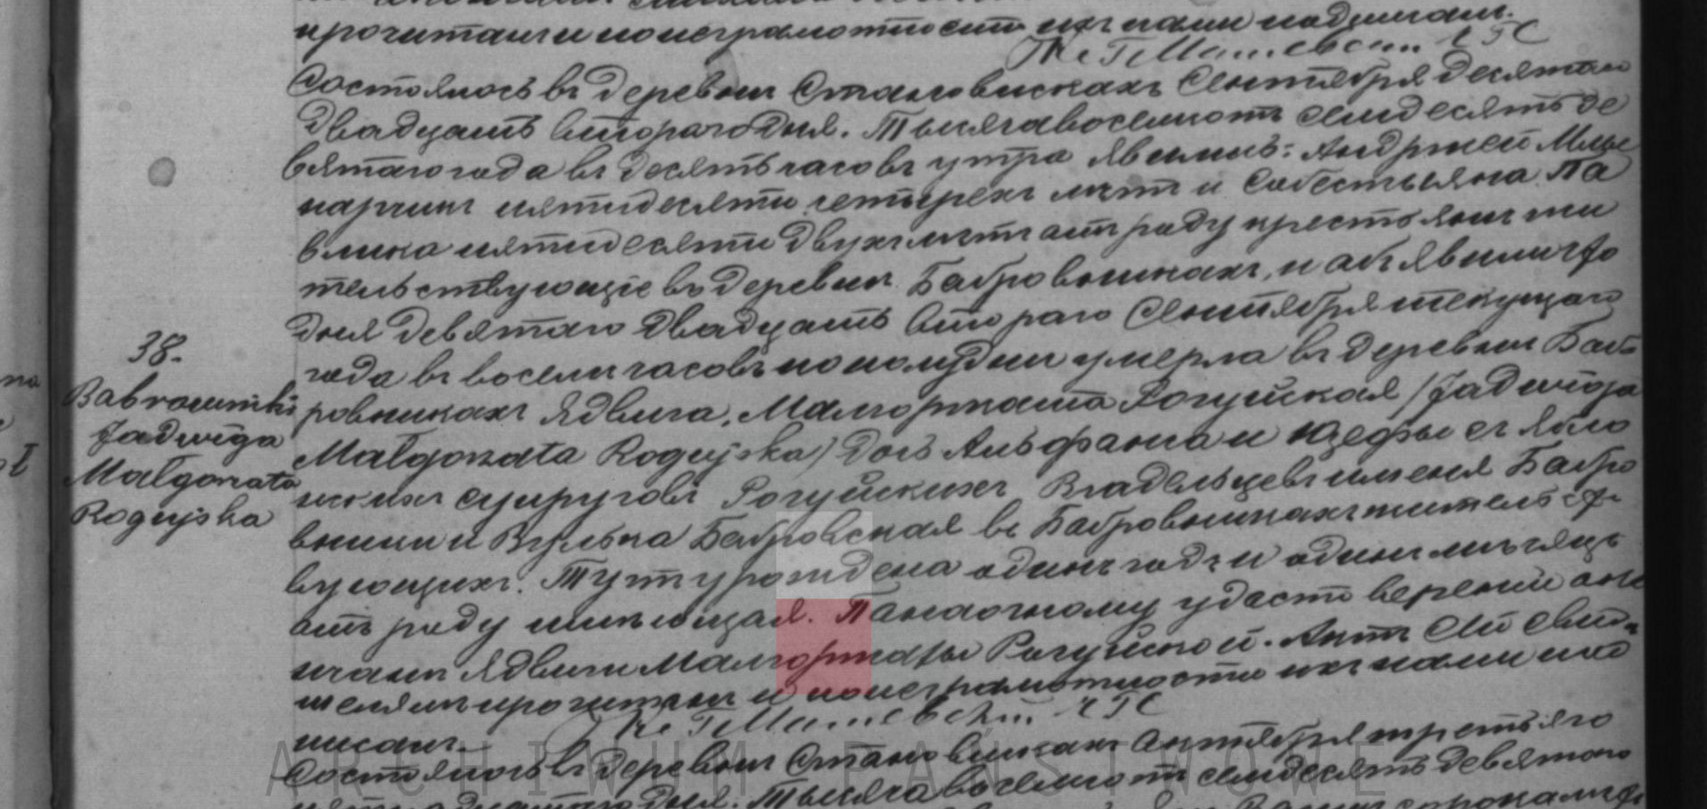 прочитанъ и по неграмотности ихъ нами подписанъ.
38.
Babrowniki
Jadwiga
Małgorzata
Rogujska
Состоялось въ деревни Становискахъ Сентября десятаго
двадцать втораго дня. Тысяча восемьсотъ семдесятъ де
вятаго года въ десять часовъ утра явились: Андржей
пятидесяти четырехъ лѣтъ и Себестьяна Па
влика пятидесяти двухъ лѣтъ отъ роду крестьяни жи
тельствующіе въ деревни Бобровникахъ, и объявили что
дня девятаго двадцать втораго Сентября текущаго
года въ восемь часовъ по полудни умерла въ деревни Боб
ровникахъ Ядвига, Малгоржата Рогуйская /Jadwiga
Małgorzata Rogujska/ дочь Альфонса и Юзефы съ Ябло
нскихъ супруговъ Рогуйскихъ Владельцевъ именя Бобро
вники и Вулька Бобровская въ Бобровникахъ жительст
вующихъ. Тутъ урождена одинъ годъ и одинъ мѣсяцъ
отъ роду имѣющая. По наочному удостоверению о ко
нчани Ядвиги Малгоржаты Рогуйской. Актъ Сей свидѣ
телямъ прочитанъ и по неграмотности ихъ нами под
писанъ.
АРCHIWUM PAŃSTWOWE
Состоялось въ деревни Становискахъ Октября третьяго
дня. Тысяча восемьсотъ семдесятъ девятаго